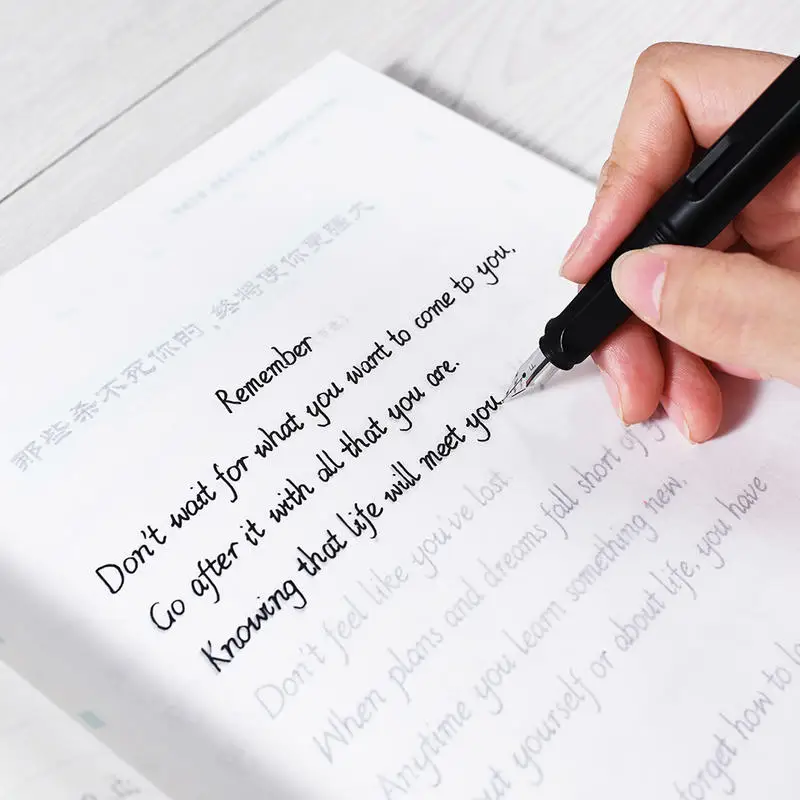 那些杀不死你的，终将使你更强大
Remember
Don't wait for what you want to come to you,
Go after it with all that you are.
Knowing that life will meet you
Don't feel like you've lost
When plans and dreams fall short of
Anytime you learn something new,
yourself or about life, you have
forget how to